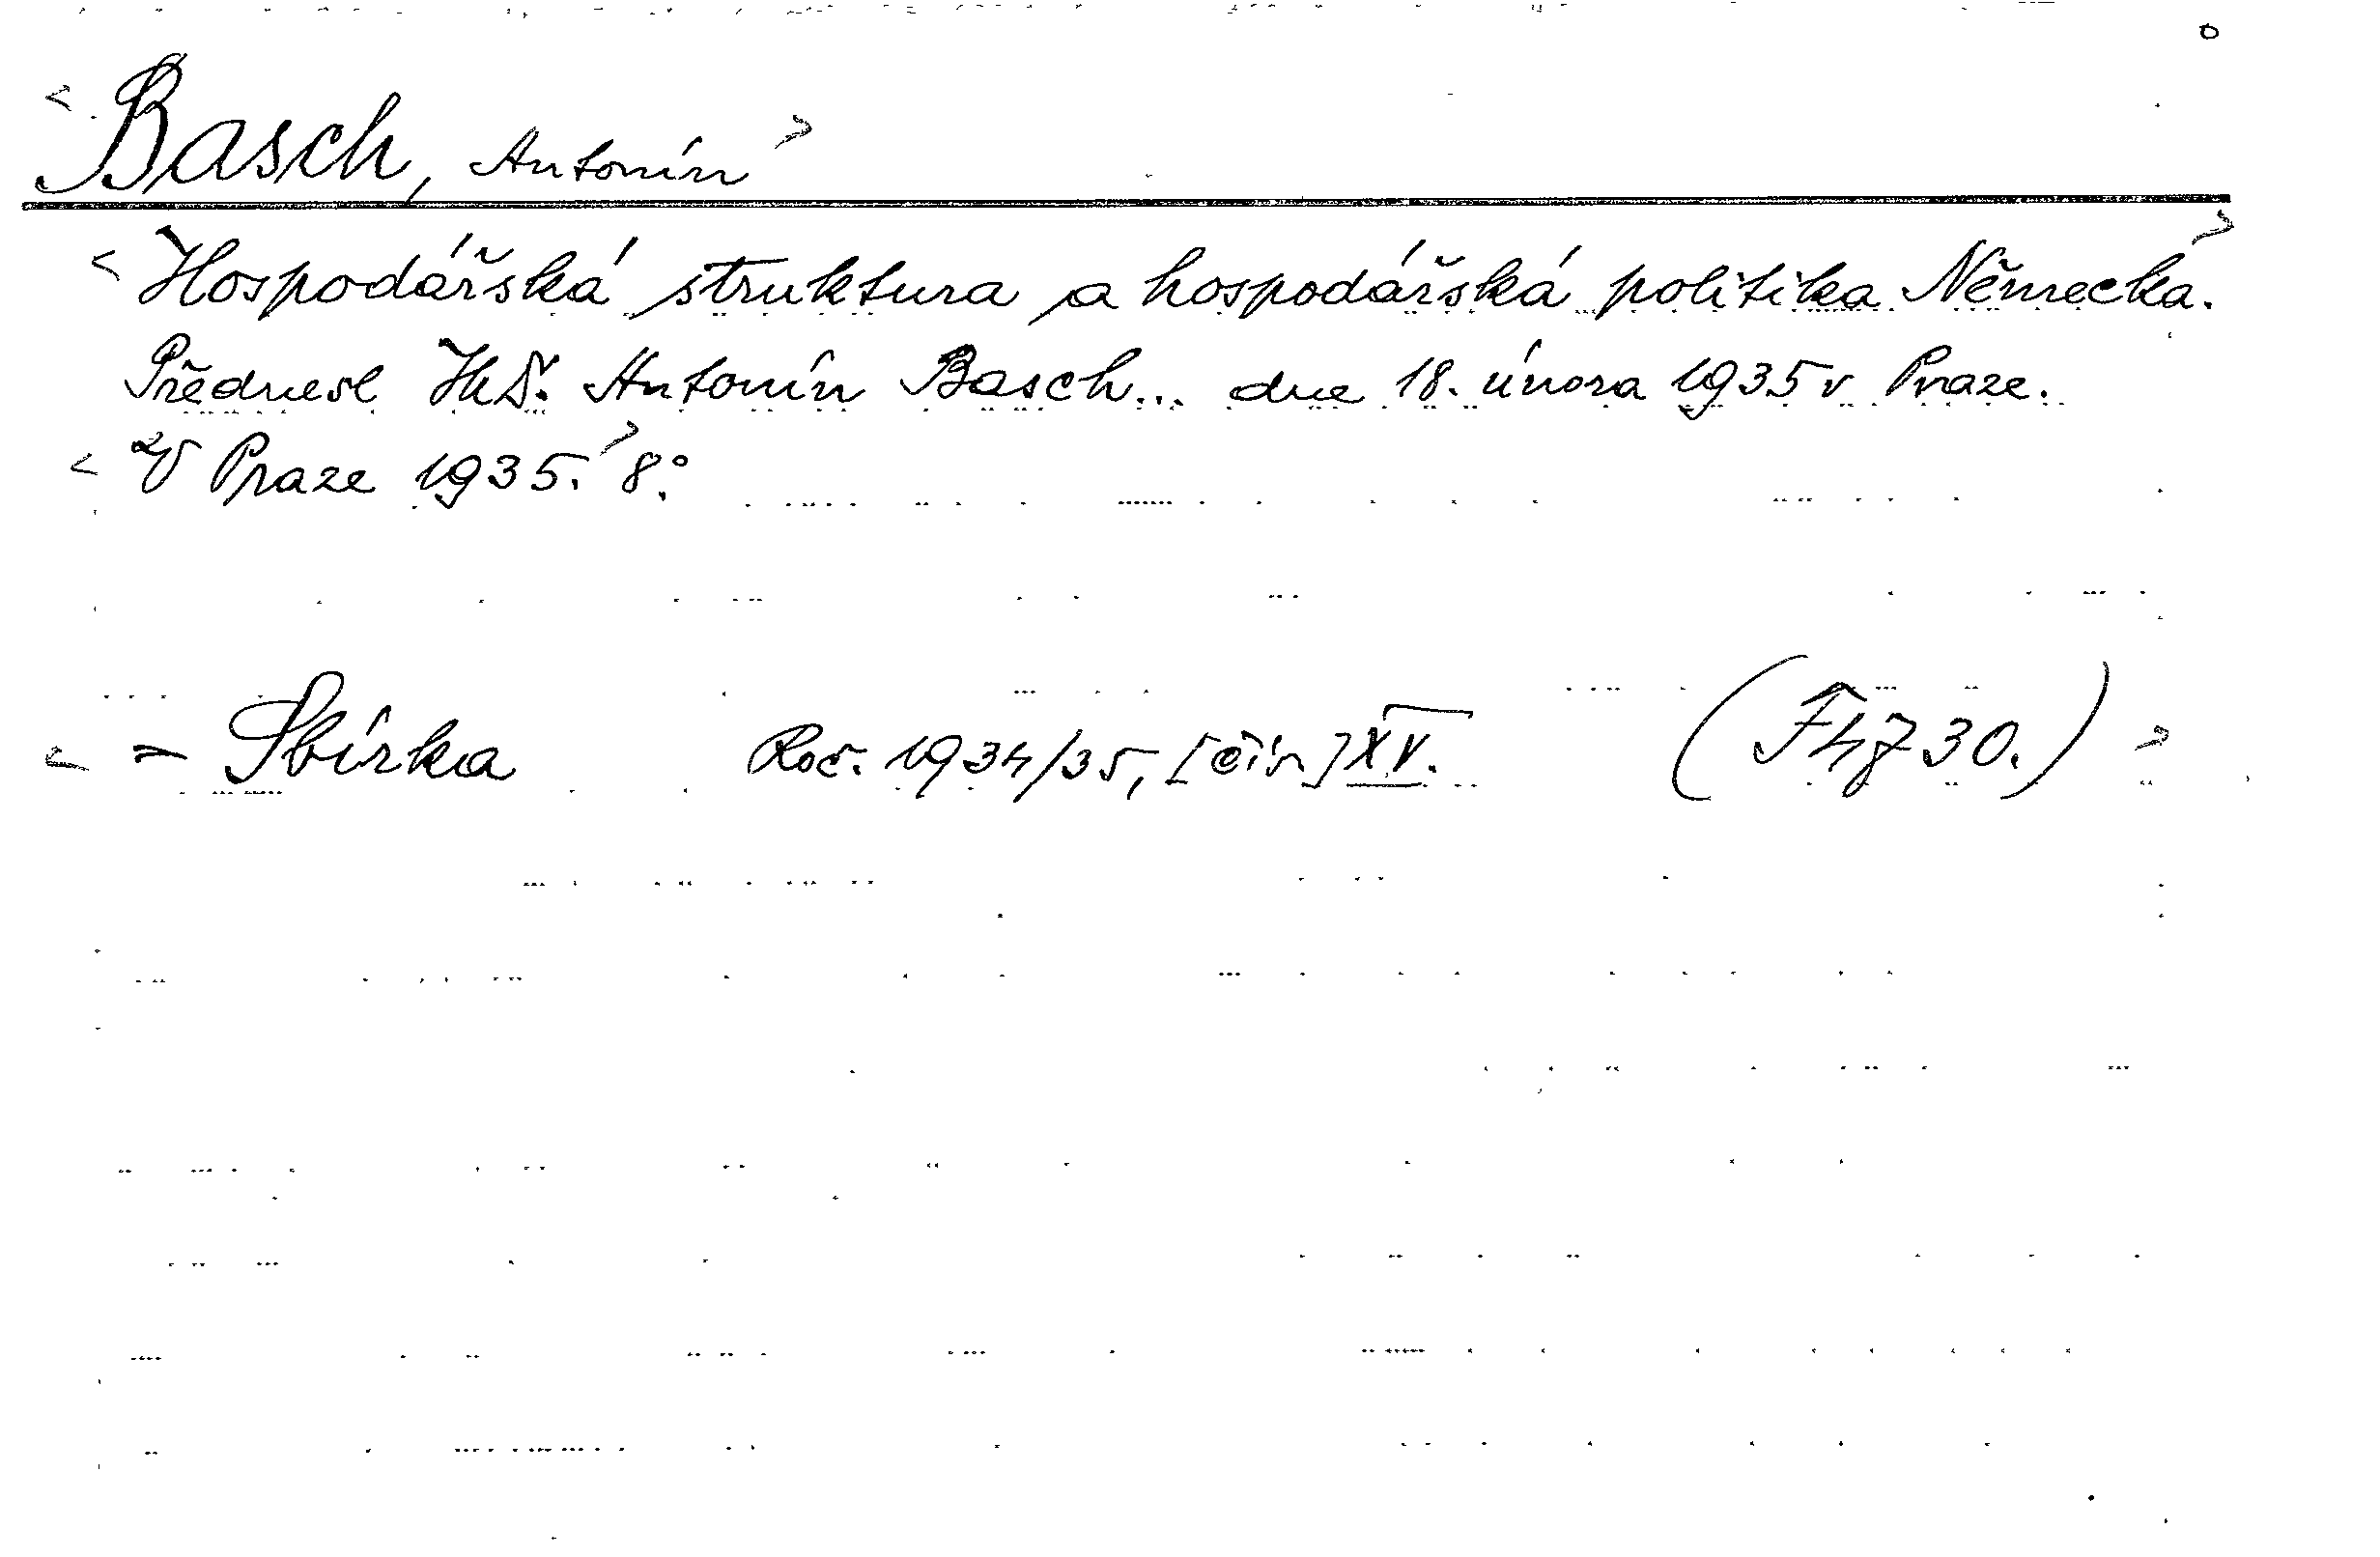 < Basch, Antonín >
< Hospodářská struktura a hospodářská politika Německa. >
Přednesl JUDr. Antonín Basch... dne 18. února 1935 v Praze.
< V Praze 1935. > 8°.
< = Sbírka Roč. 1934/35, [čís.] XV. (F 4730.) >